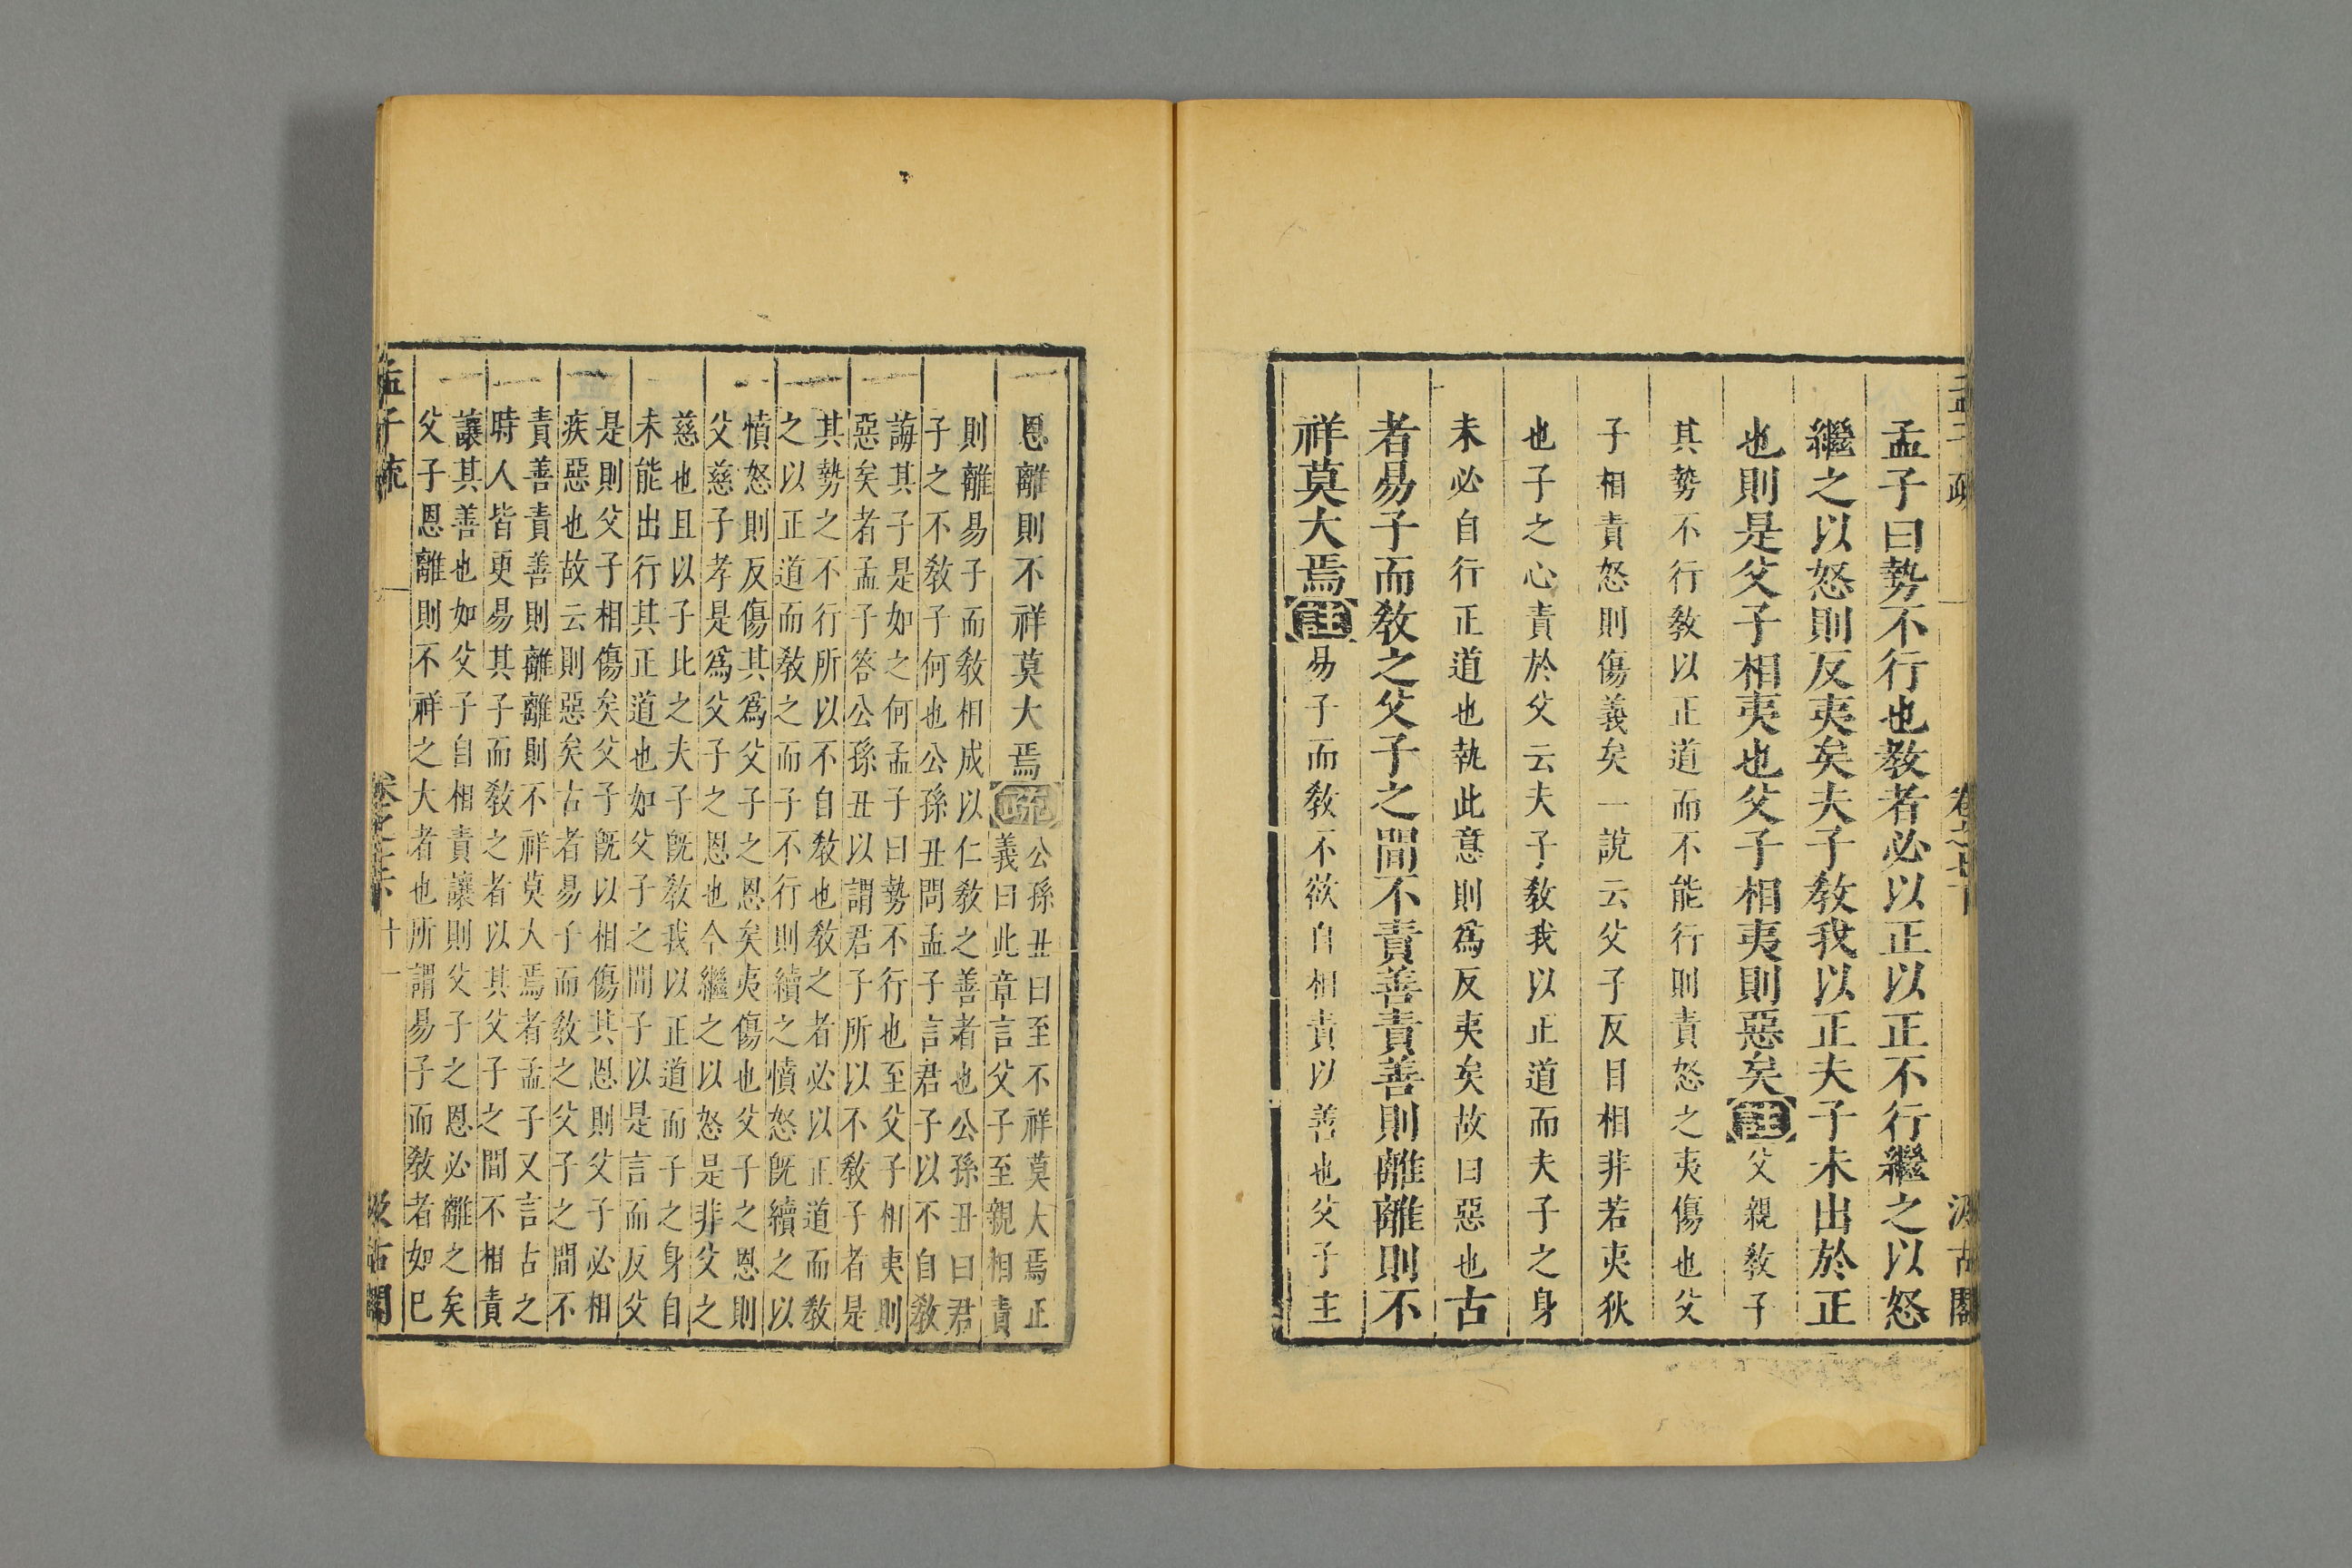 孟子疏 汲古閣
孟子曰勢不行也教者必以正以正不行繼之以怒
繼之以怒則反夷矣夫子教我以正夫子未出於正
也則是父子相夷也父子相夷則惡矣註父親教子
其勢不行教以正道而不能行則責怒之夷傷也父
子相責怒則傷義矣一說云父子反目相非若夷狄
也子之心責於父云夫子教我以正道而夫子之身
未必自行正道也執此意則爲反夷矣故曰惡也古
者易子而教之父子之間不責善責善則離離則不
祥莫大焉註易子而教不欲自相責以善也父子主
恩離則不祥莫大焉疏
公孫丑曰至不祥莫大焉正
義曰此章言父子至親相責
則離易子而教相成以仁教之善者也公孫丑曰君
子之不教子何也公孫丑問孟子言君子以不自教
誨其子是如之何孟子曰勢不行也至父子相夷則
惡矣者孟子答公孫丑以謂君子所以不教子者是
其勢之不行所以不自教也教之者必以正道而教
之以正道而教之而子不行則續之憤怒旣續之以
憤怒則反傷其爲父子之恩矣夷傷也父子之恩則
父慈子孝是爲父子之恩也今繼之以怒是非父之
慈也且以子比之夫子旣教我以正道而子之身自
未能出行其正道也如父子之間子以是言而反父
是則父子相傷矣父子旣以相傷其恩則父子必相
疾惡也故云則惡矣古者易子而教之父子之間不
責善責善則離離則不祥莫大焉者孟子又言古之
時人皆更易其子而教之者以其父子之間不相責
讓其善也如父子自相責讓則父子之恩必離之矣
父子恩離則不祥之大者也所謂易子而教者如已
孟子疏 十一 汲古閣